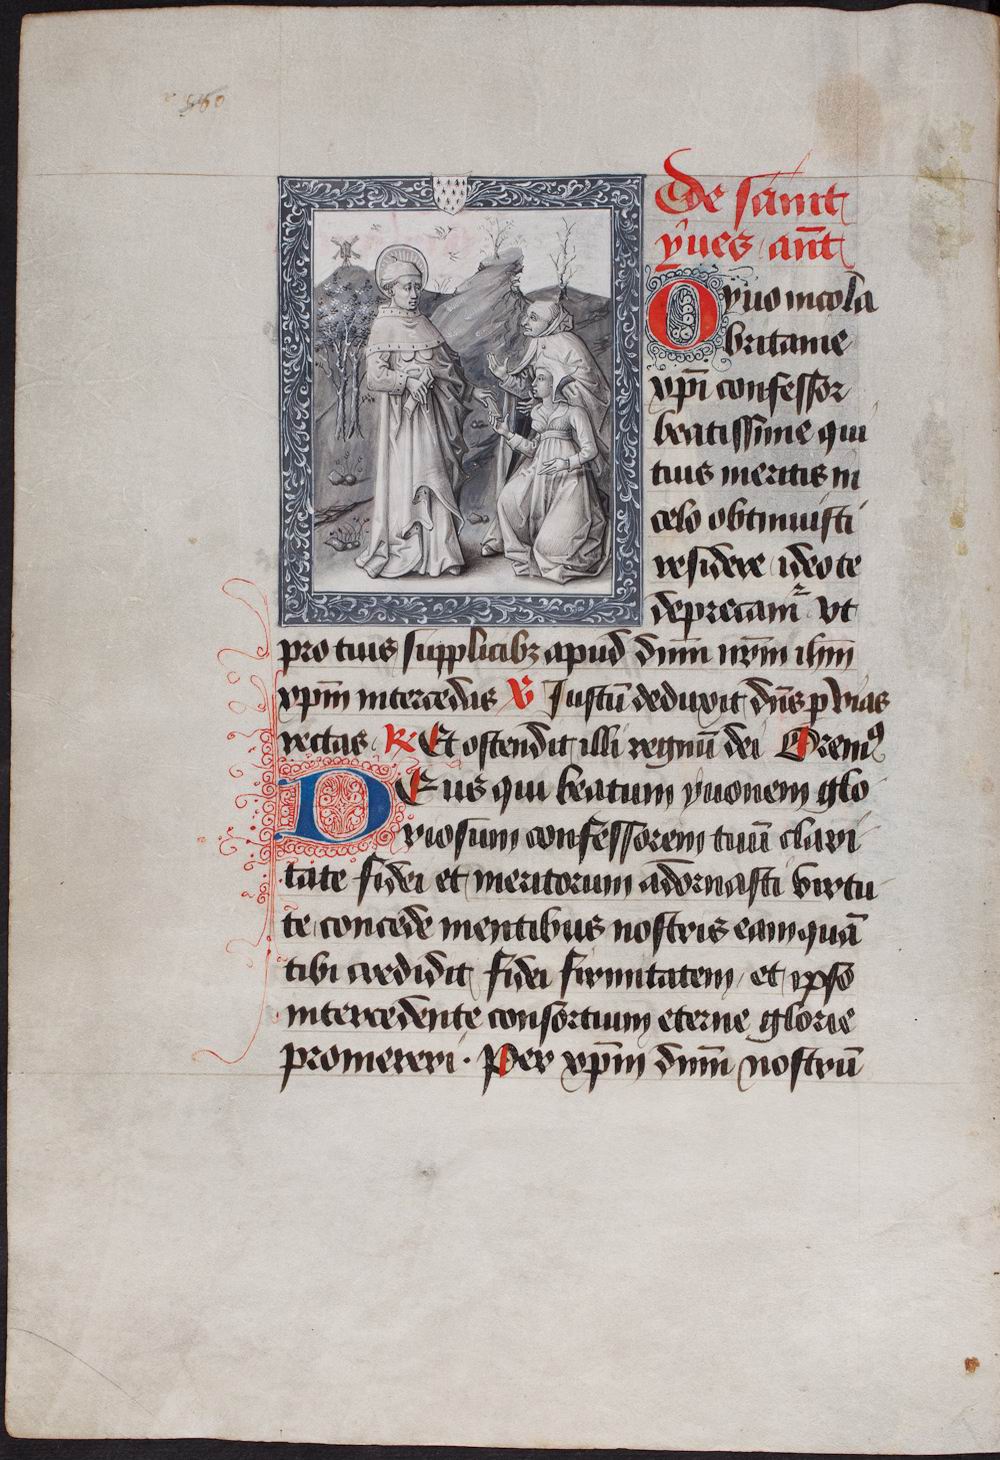 De sanct
yues ant̄
O yuo incola
britanie
xp̄i confessor
beatissime qui
tuis meritis in
celo obtinuisti
residere ideo te
deprecamꝛ vt
pro tuis supplicibꝫ apud dn̄m nr̄m ihm̄
xpm̄ intercedas ℣ Justū deduxit dn̄s ꝑ vias
rectas ℟ Et ostendit illi regnū dei Oremꝰ
DEus qui beatum yuonem glo
riosum confessorem tuū clari
tate fidei et meritorum adornasti virtu
te concede mentibus nostris eam quā
tibi credidit fidei firmitatem et ipso
intercedente consortium eterne glorie
promereri · Per xpm̄ dn̄m nostrū